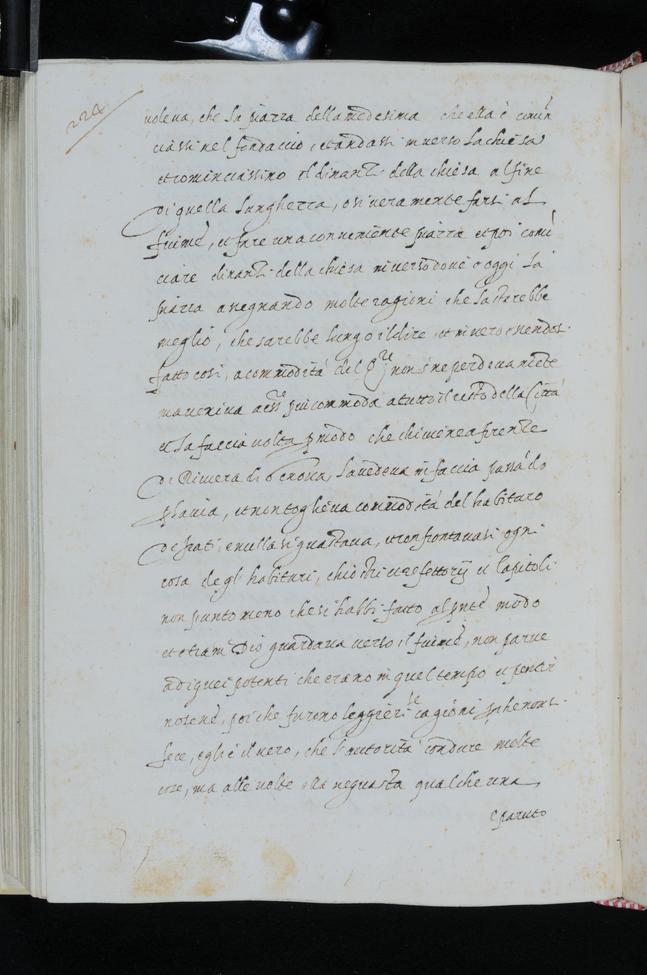 224
voleva, che la piazza della medesima che ella è comin
ciassi nel fondaccio, et andassi in verso la chiesa
et cominciassino il dinanzi della chiesa al fine
di quella lungherza, o si veramente farsi al
fiume, et fare una conveniente piazza et poi comī
ciare dinanzi della chiesa in verso dove è oggi la
piazza assegnando molte ragioni che la starebbe
meglio, che sarebbe lungo il dire, et in vero essendosi
fatto così, a commodità del non se ne perdeva niēte
ma veniva più commoda a tutto il resto della Città
et la faccia volta modo che chi viene a firenze
di Riviera di Genova, la vedeva in faccia passādo
p la via, et non toglieva commodità del habituro
de frati, e nulla si guastava, et confrontavasi ogni
cosa degl habituri, chiostri et refettorij et capitoli
non punto meno che si habbi fatto al p̄nte modo
et etiam Dio guardava verso il fiume, non parve
a di quei potenti che erano in quel tempo et pentir
nosene, poi che furono leggieri le cagioni
fece, egli è il vero, che l'autorità conduce molte
cose, ma alle volte ella ne guasta qualche una
è paruto